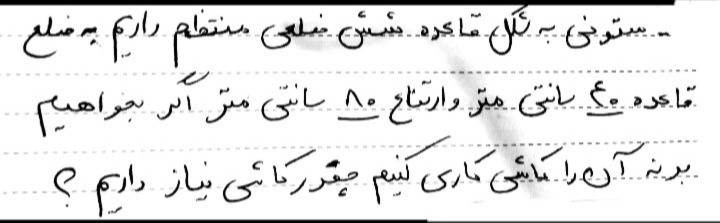 - ستونی به شکل قاعده شش ضلعی منتظم داریم به ضلع
قاعده ۴۰ سانتی متر وارتفاع ۸۰ سانتی متر اگر بخواهیم
بدنه آن را کاشی کاری کنیم چقدر کاشی نیاز داریم ؟